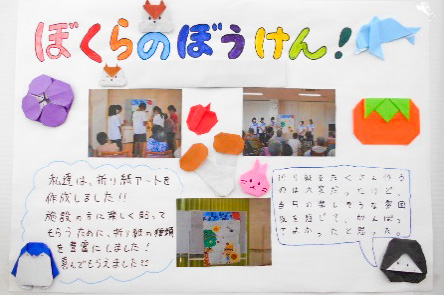 ぼくらのぼうけん!
私達は、折り紙アートを
作成しました!!
施設の方に楽しく貼って
もらうために、折り紙の種類
を豊富にしました!
喜んでもらえました!!
折り紙をたくさん作う
のは大変だったけど、
当日の楽しそうな雰囲
気を感じて、がんばっ
てよかったと思った。